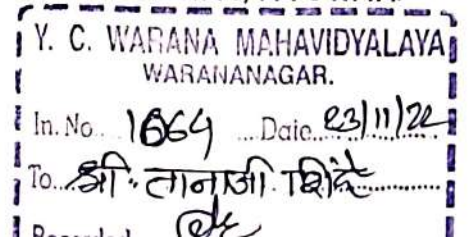 Y. C. WARANA MAHAVIDYALAYA
WARANANAGAR.
In. No. 1664 Date. 23/11/22
To. श्री. तानाजी शिंदे